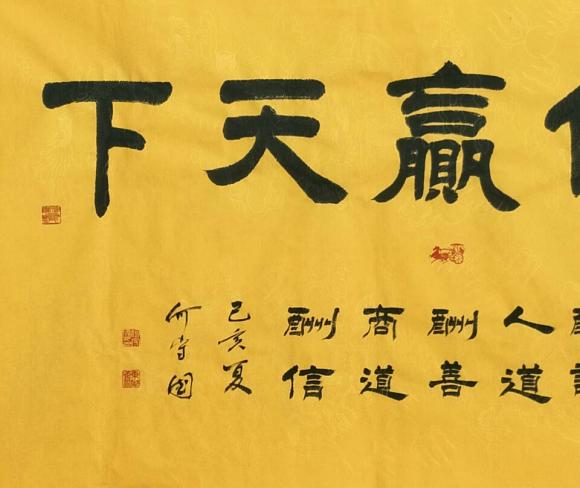 贏天下
人道
酬善
商道
酬信
己亥夏
何守国